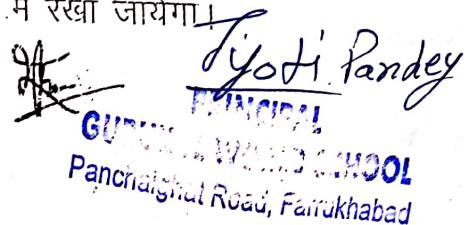 में रखा जायेगा।
Jyoti Pandey
PRINCIPAL
SCHOOL
Panchalghat Road, Farrukhabad